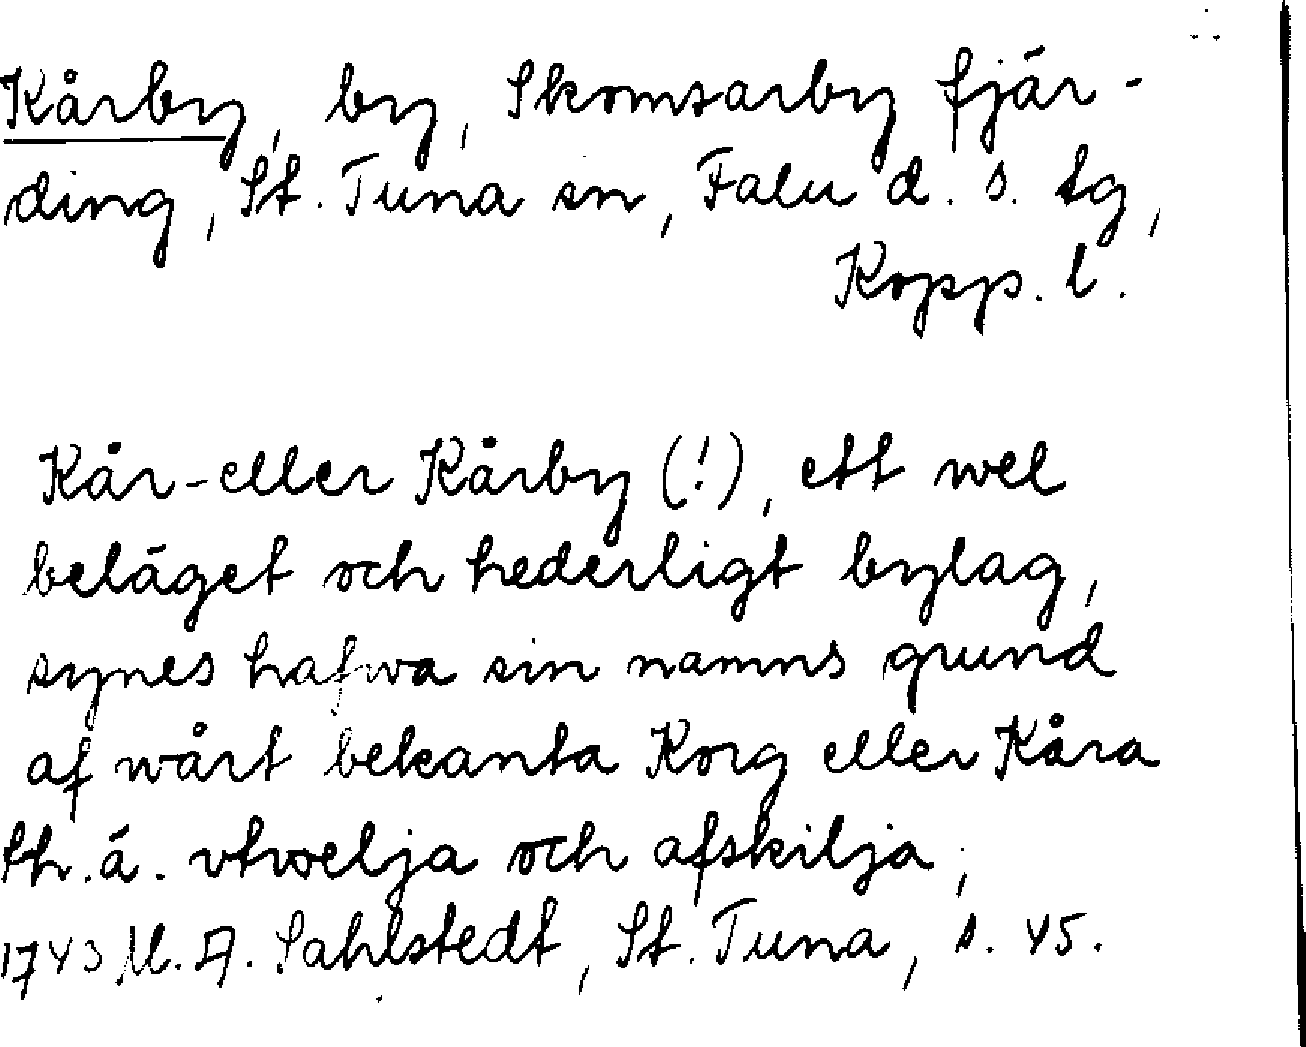 Kårby, by, Skomsarby fjär-
ding, St. Tuna sn, Falu d. s. tg,
Kopp. l.
Kår- eller Kårby (!), ett wel
beläget och hederligt bylag,
synes hafwa sin namns grund
af wårt bekanta Korg eller Kåra
th. ä. vtwelja och afskilja;
1743 M. A. Sahlstedt, St. Tuna, s. 45.